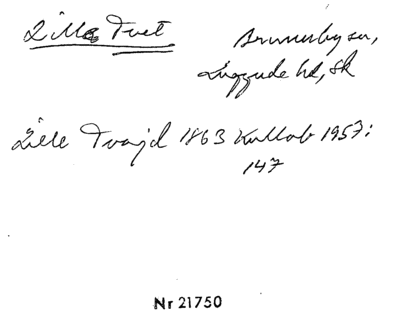 Lilla Tvet
Brunnby sn,
Luggude hd, Sk
Lille Tvajd 1863 Kullab 1957:
147
Nr 21750